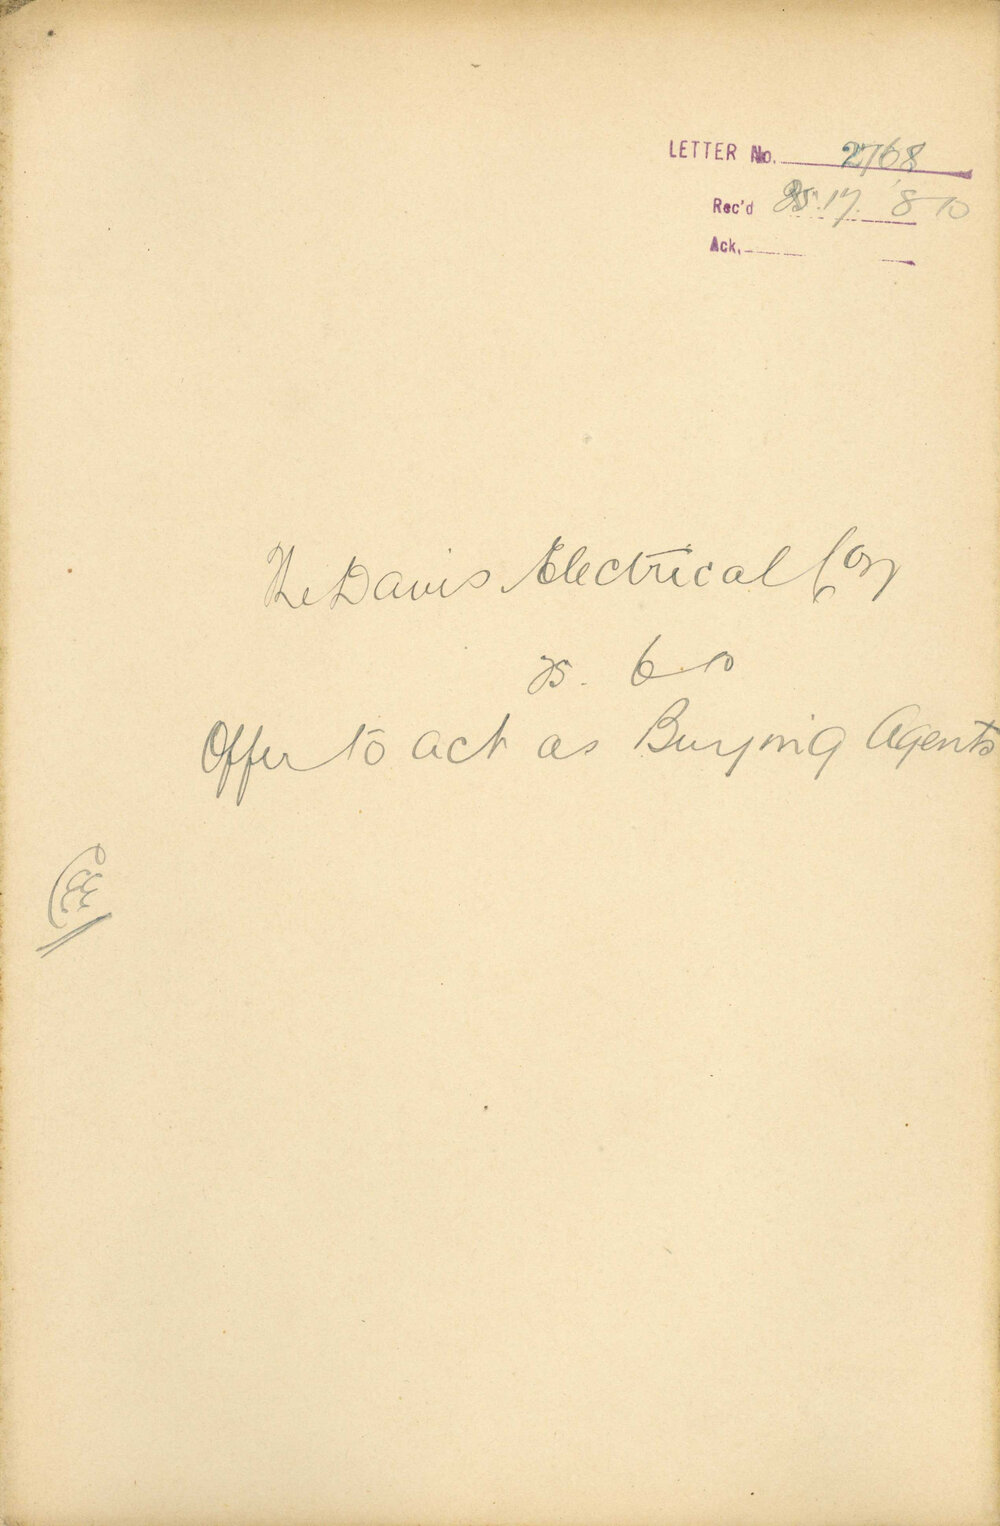 LETTER No. 2768
Rec'd
Ack.
The Davis Electrical Coy
Offer to act as Buying Agents